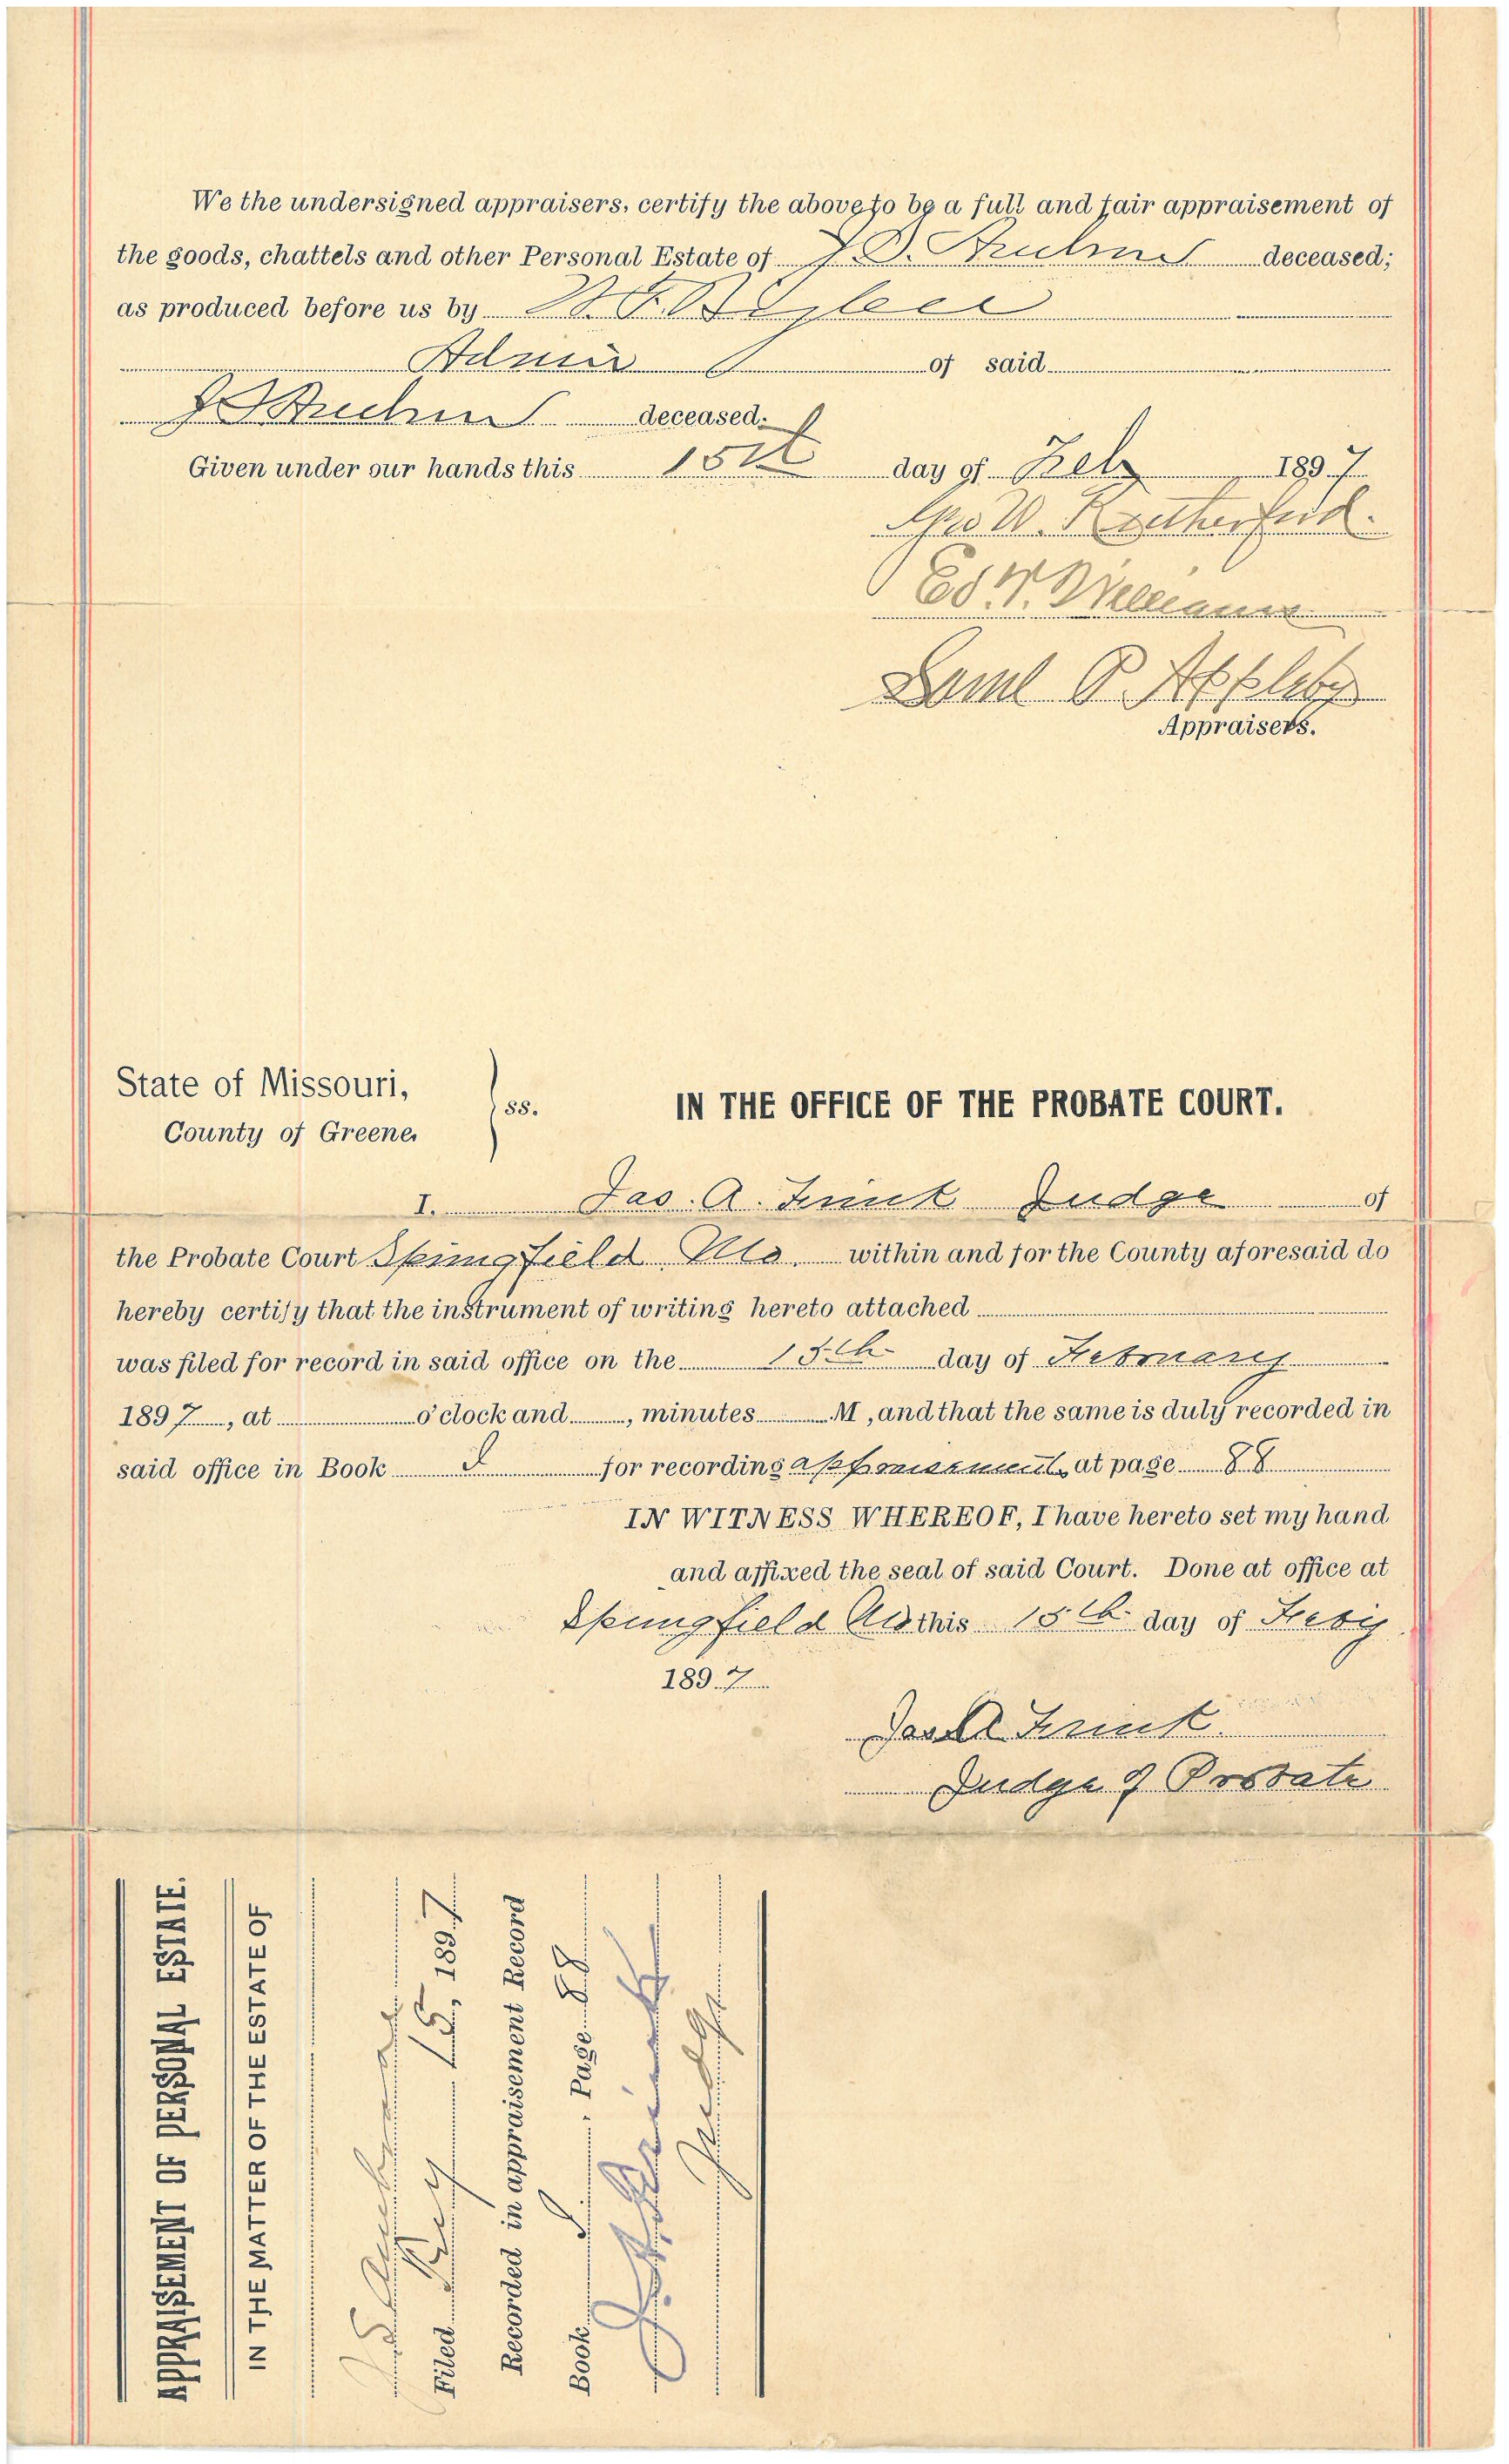 We the undersigned appraisers, certify the above to be a full and fair appraisement of
the goods, chattels and other Personal Estate of J. D. deceased;
as produced before us by
Admr of said
J D deceased.
Given under our hands this 15th day of Feby 1897
Geo W. Rutherford.
Ed. Williams
Saml P. Appleby
Appraisers.
State of Missouri,
County of Greene,
ss.
IN THE OFFICE OF THE PROBATE COURT.
I. Jas. A. Frink Judge of
the Probate Court Springfield Mo. within and for the County aforesaid do
hereby certify that the instrument of writing hereto attached
was filed for record in said office on the 15th day of February
1897, at o'clock and , minutes M, and that the same is duly recorded in
said office in Book I for recording appraisements at page 88
IN WITNESS WHEREOF, I have hereto set my hand
and affixed the seal of said Court. Done at office at
Springfield Mo this 15th day of Feby
1897
Jas A Frink
Judge of Probate
APPRAISEMENT OF PERSONAL ESTATE.
IN THE MATTER OF THE ESTATE OF
Filed Feby 15, 1897
Recorded in appraisement Record
Book I, Page 88
J. A. Frink
Judge